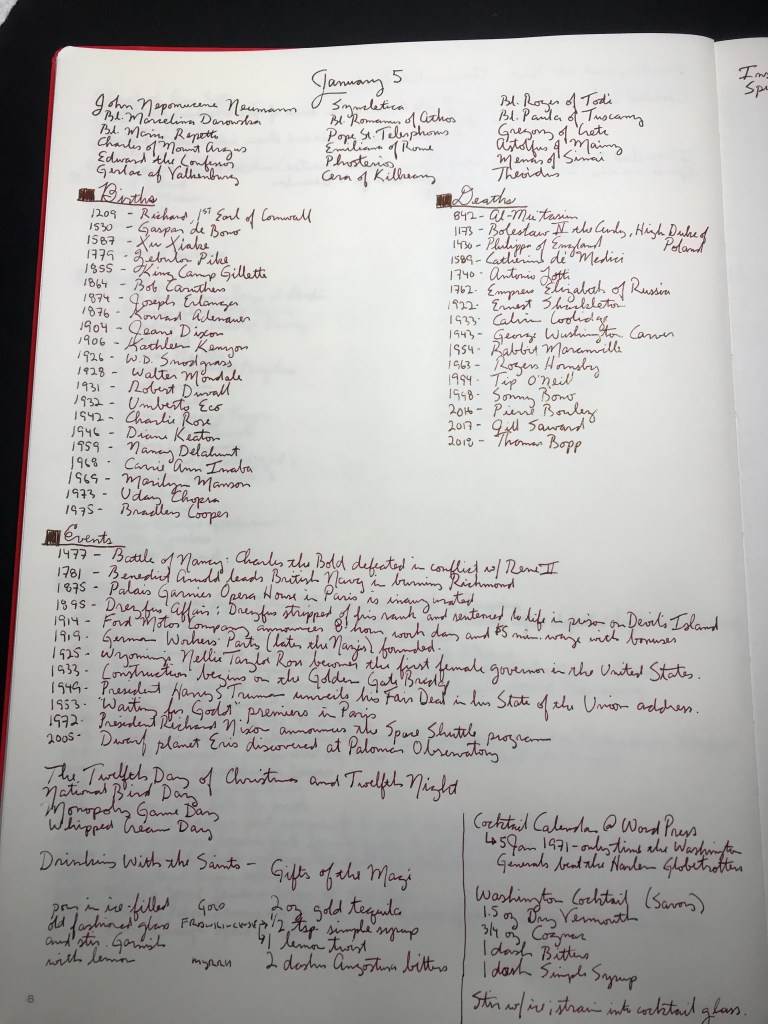 January 5
John Nepomucene Neumann
Bl. Marcelina Darowska
Bl. Maria Repetto
Charles of Mount Argus
Edward the Confessor
Gerlac of Valkenburg
Syncletica
Bl. Romanus of Athos
Pope St. Telesphorus
Emiliana of Rome
Phosterios
Cera of Kilkeary
Bl. Roger of Todi
Bl. Paula of Tuscany
Gregory of Crete
Astolfus of Mainz
Menas of Sinai
Theoidus
Births
1209 - Richard, 1ST Earl of Cornwall
1530 - Gaspar de Bono
1587 - Xu Xiake
1779 - Zebulon Pike
1855 - King Camp Gillette
1864 - Bob Caruthers
1874 - Joseph Erlanger
1876 - Konrad Adenauer
1904 - Jeane Dixon
1906 - Kathleen Kenyon
1926 - W.D. Snodgrass
1928 - Walter Mondale
1931 - Robert Duvall
1932 - Umberto Eco
1942 - Charlie Rose
1946 - Diane Keaton
1959 - Nancy Delahunt
1968 - Carrie Ann Inaba
1969 - Marilyn Manson
1973 - Uday Chopra
1975 - Bradley Cooper
Deaths
842 - Al-Mu'tasim
1173 - Bolesław IV the Curly, High Duke of
Poland
1430 - Philippa of England
1589 - Catherine de Medici
1740 - Antonio Lotti
1762 - Empress Elizabeth of Russia
1922 - Ernest Shackleton
1933 - Calvin Coolidge
1943 - George Washington Carver
1954 - Rabbit Maranville
1963 - Rogers Hornsby
1994 - Tip O'Neil
1998 - Sonny Bono
2016 - Pierre Boulez
2017 - Jill Saward
2018 - Thomas Bopp
Events
1477 - Battle of Nancy: Charles the Bold defeated in conflict w/ René II
1781 - Benedict Arnold leads British Navy in burning Richmond
1875 - Palais Garnier Opera House in Paris is inaugurated
1895 - Dreyfus Affair: Dreyfus stripped of his rank and sentenced to life in prison on Devil's Island
1914 - Ford Motor Company announces 8 hour work day and $5 min. wage with bonuses
1919 - German Workers' Party (later the Nazis) founded.
1925 - Wyoming's Nellie Taylor Ross becomes the first female governor in the United States.
1933 - Construction begins on the Golden Gate Bridge
1949 - President Harry S Truman unveils his Fair Deal in his State of the Union address.
1953 - "Waiting for Godot" premiers in Paris
1972 - President Richard Nixon announces the Space Shuttle program
2005 - Dwarf planet Eris discovered at Palomar Observatory
The Twelfth Day of Christmas and Twelfth Night
National Bird Day
Monopoly Game Day
Whipped Cream Day
Drinking With the Saints - Gifts of the Magi
pour in ice-filled
old fashioned glass
and stir. Garnish
with lemon
GOLD 2 oz gold tequila
1/2 tsp. simple syrup
1 lemon twist
MYRRH 2 dashes Angostura bitters
Cocktail Calendar @ WordPress
↳ 5 Jan 1971 - only time the Washington
Generals beat the Harlem Globetrotters
Washington Cocktail (Savoy)
1.5 oz Dry Vermouth
3/4 oz Cognac
1 dash Bitters
1 dash Simple Syrup
Stir w/ ice; strain into cocktail glass.
8